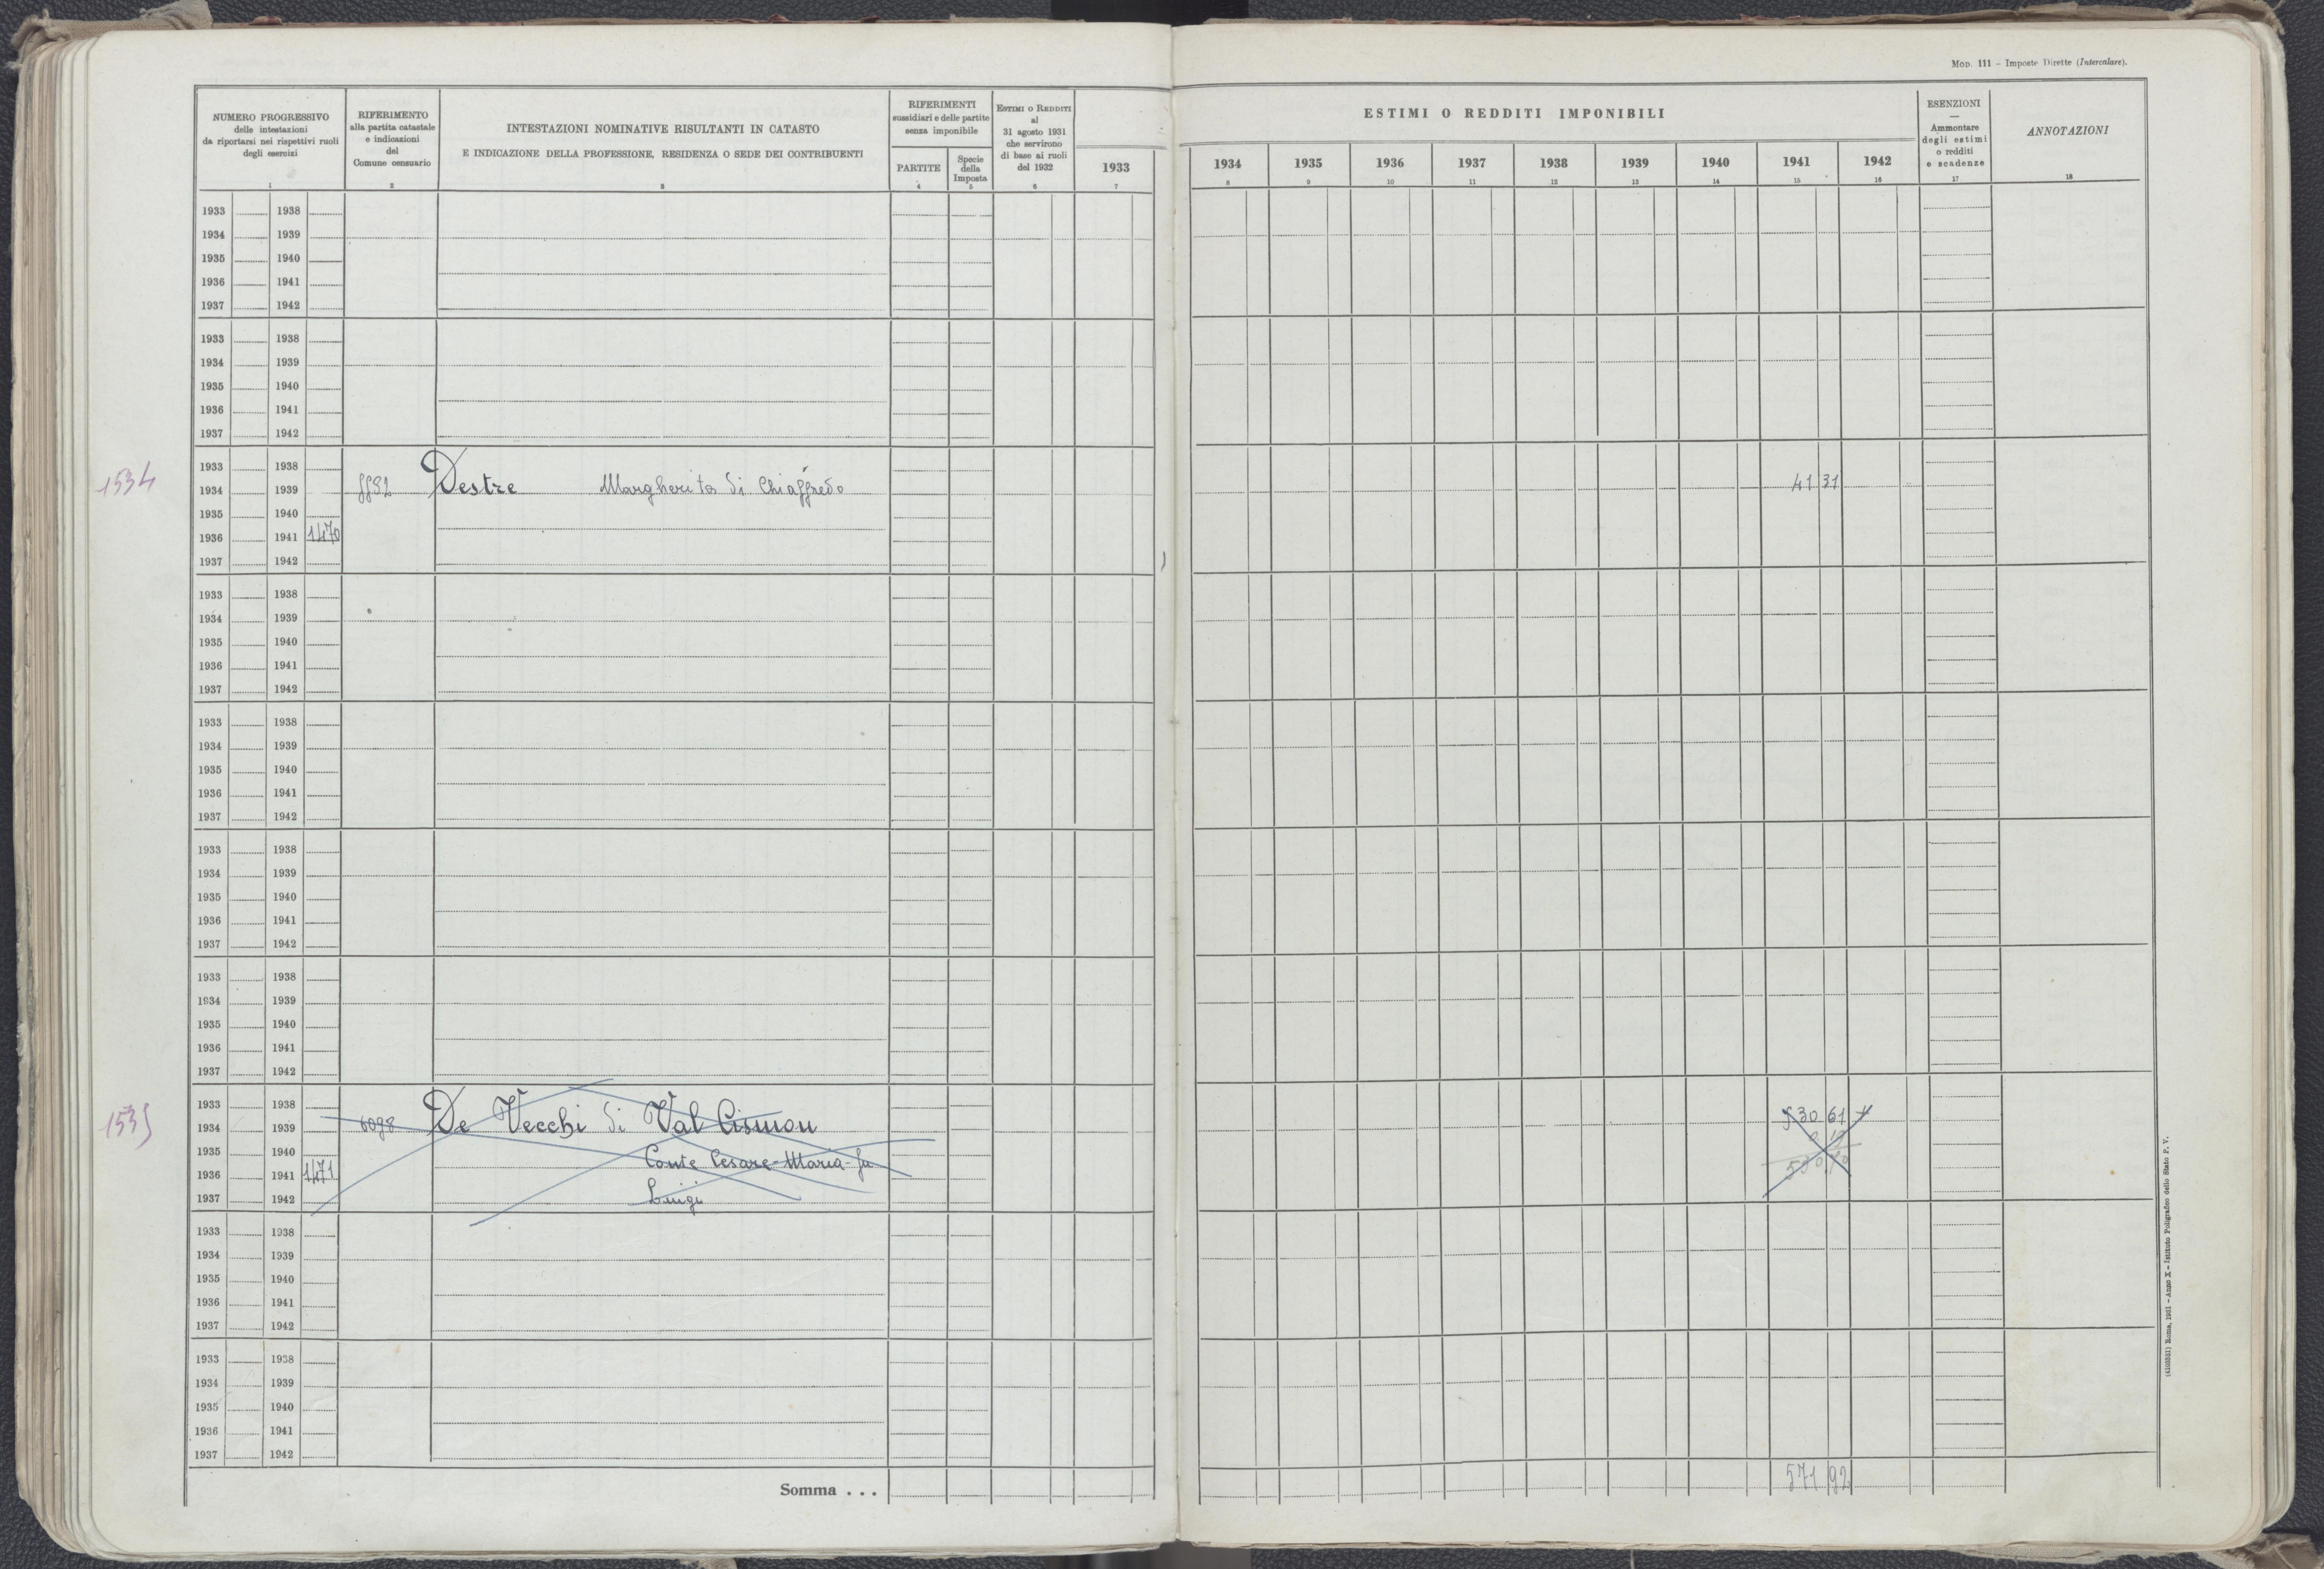 Mod. 111 – Imposte Dirette (Intercalare).
NUMERO PROGRESSIVO
delle intestazioni
da riportarsi nei rispettivi ruoli
degli esercizi
1
RIFERIMENTO
alla partita catastale
e indicazioni
del
Comune censuario
2
INTESTAZIONI NOMINATIVE RISULTANTI IN CATASTO
E INDICAZIONE DELLA PROFESSIONE, RESIDENZA O SEDE DEI CONTRIBUENTI
3
RIFERIMENTI
sussidiari e delle partite
senza imponibile
PARTITE
4
Specie
della
Imposta
5
Estimi o Redditi
al
31 agosto 1931
che servirono
di base ai ruoli
del 1932
6
1933
7
ESTIMI O REDDITI IMPONIBILI
1934 1935 1936 1937 1938 1939 1940 1941 1942
8 9 10 11 12 13 14 15 16
ESENZIONI
—
Ammontare
degli estimi
o redditi
e scadenze
17
ANNOTAZIONI
18
1933 1938
1934 1939
1935 1940
1936 1941
1937 1942
1933 1938
1934 1939
1935 1940
1936 1941
1937 1942
1933 1938
1534 1934 1939 Destre Margherita di Chiaffredo 41 31
1935 1940
1936 1941 1470
1937 1942
1933 1938
1934 1939
1935 1940
1936 1941
1937 1942
1933 1938
1934 1939
1935 1940
1936 1941
1937 1942
1933 1938
1934 1939
1935 1940
1936 1941
1937 1942
1933 1938
1934 1939
1935 1940
1936 1941
1937 1942
1933 1938
1535 1934 1939 6098 De Vecchi di Val Cismon 530 61
1935 1940
1936 1941 1471 Conte Cesare-Maria-fu
1937 1942 Luigi
1933 1938
1934 1939
1935 1940
1936 1941
1937 1942
1933 1938
1934 1939
1935 1940
1936 1941
1937 1942
Somma . . . 571 92
(4103531) Roma, 1931 – Anno X – Istituto Poligrafico dello Stato P. V.